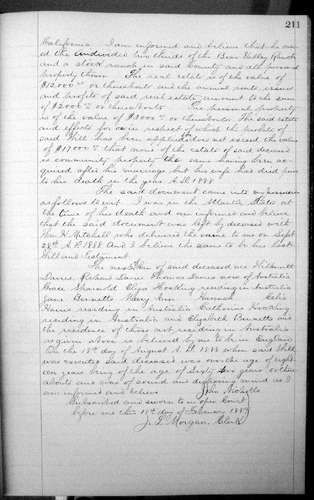 211
California. I am informed and believe that he own-
ed the undivided two thirds of the Bear Valley Ranch
and a stock ranch in said County and all personal
property thereon. The real estate is of the value of
$12000 00 or thereabouts and the annual rents, issues
and profits of said real estate amount to the sum
of $2000 00 or thereabouts. The personal property
is of the value of $3000 00 or thereabouts. The said estate
and effects for or in respect to which the probate of
said Will has been applied does not exceed the value
of $17000 00 that none of the estate of said deceased
is community property the same having been ac-
quired after his marriage but his wife has died prior
to his death in the year A.D. 1888
The said document came into my possession
as follows to wit. I was in the Atlantic States at
the time of his death and am informed and believe
that the said document was left by deceased with
Wm K. Mitchell who delivered the same to me on Sept
28th A.D. 1888 And I believe the same to be his last
Will and Testament
The next of kin of said deceased are
Davies, Richard Davies Thomas Davies now of Australia
Grace Eliza Hocking residing in Australia
Jane Bennetts Mary Ann Hannah Celia
Harris residing in Australia Catherine Hocking
residing in Australia and Elizabeth Bennetts and
the residence of those not residing in Australia
as given above is believed by me to be in England
On the 18th day of August A.D. 1888 when said Will
was executed said deceased was over the age of eight-
een years being of the age of Sixty years or there
abouts and was of sound and disposing mind as I
am informed and believe John Nicholls
Subscribed and sworn to in open Court
before me this 18th day of February 1889
J. L. Morgan, Clerk